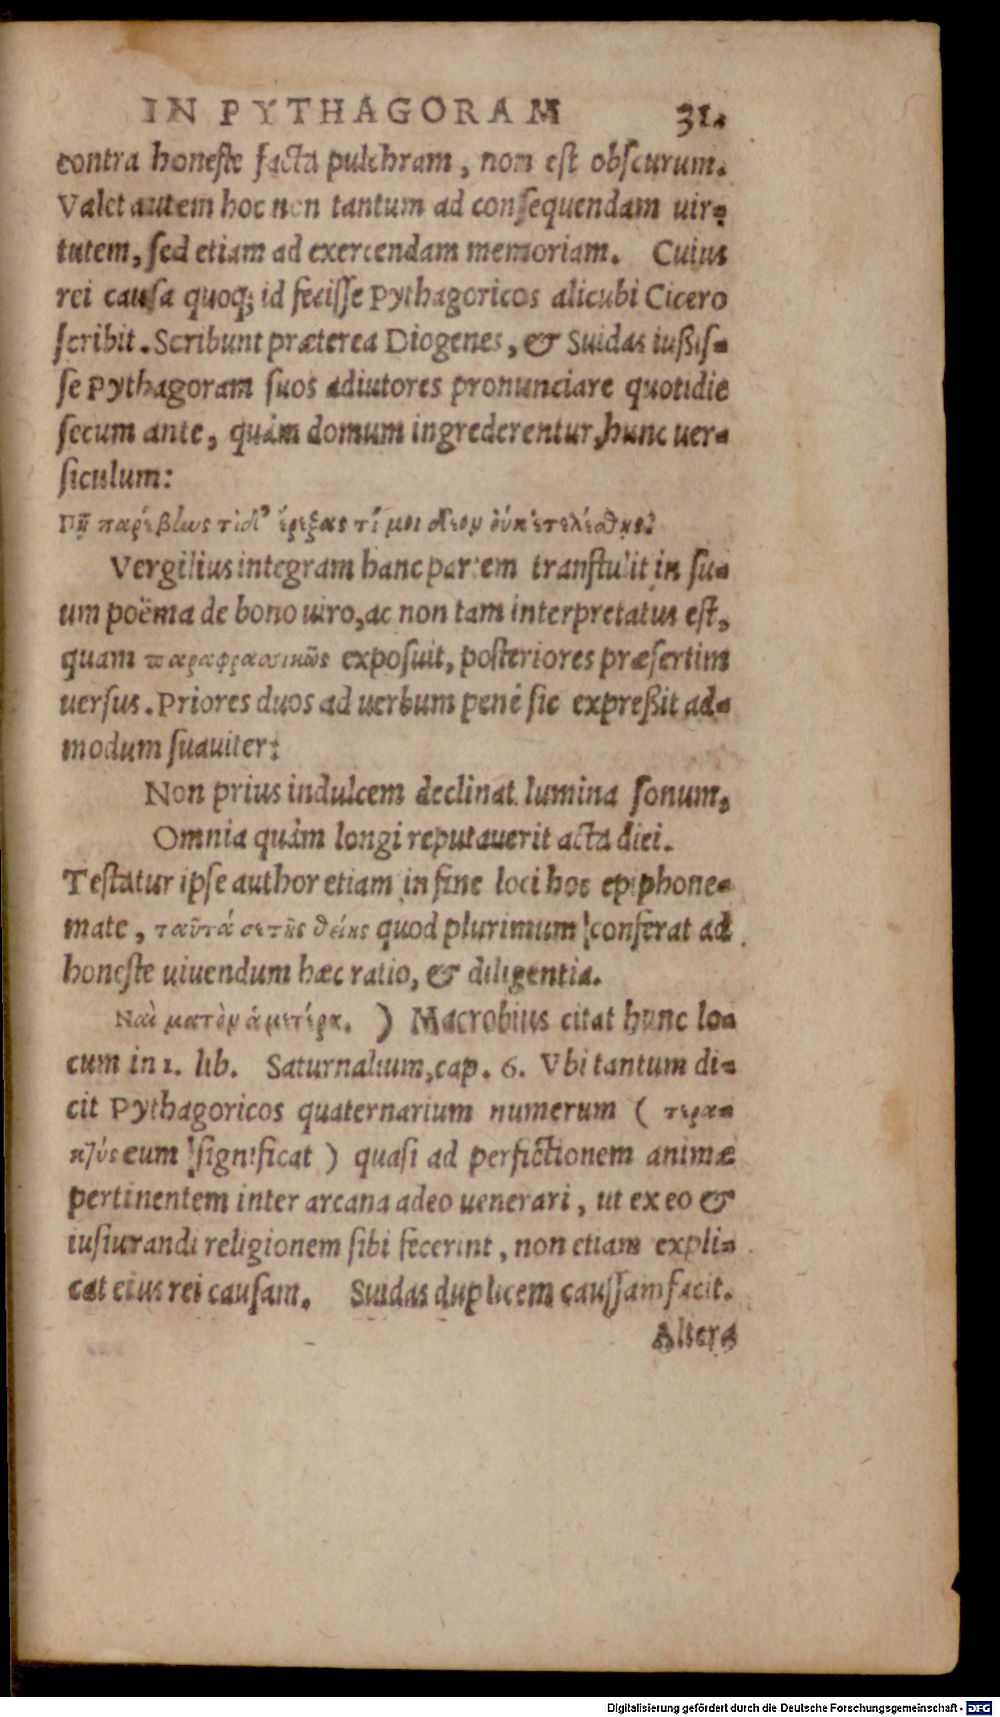 IN PYTHAGORAM 31.
contra honeste facta pulchram, non est obscurum.
Valet autem hoc non tantum ad consequendam uir-
tutem, sed etiam ad exercendam memoriam. Cuius
rei causa quoq; id fecisse Pythagoricos alicubi Cicero
scribit. Scribunt præterea Diogenes, & Suidas iußis-
se Pythagoram suos adiutores pronunciare quotidie
secum ante, quàm domum ingrederentur, hunc uer-
siculum:
Πῆ παρέβίως τὶ δ' ἔρεξας τί μοι δέον οὐκ ἐτελέσθης;
Vergilius integram hanc partem transtulit in su-
um poëma de bono uiro, ac non tam interpretatus est,
quam παραφρασικῶς exposuit, posteriores præsertim
uersus. Priores duos ad uerbum penè sic expreßit ad-
modum suauiter:
Non prius indulcem declinat lumina sonum,
Omnia quàm longi reputauerit acta diei.
Testatur ipse author etiam in fine loci hoc epiphone-
mate, ταῦτά σε τῆς θείης quod plurimum conferat ad
honeste uiuendum hæc ratio, & diligentia.
Ναὶ ματὸν ἁμετέρα. ) Macrobius citat hunc lo-
cum in 1. lib. Saturnalium, cap. 6. Vbi tantum di-
cit Pythagoricos quaternarium numerum ( τετρα-
κτύς eum significat ) quasi ad perfictionem animæ
pertinentem inter arcana adeo uenerari, ut ex eo &
iusiurandi religionem sibi fecerint, non etiam expli-
cat eius rei causam. Suidas duplicem caussam facit.
Altera
Digitalisierung gefördert durch die Deutsche Forschungsgemeinschaft - DFG